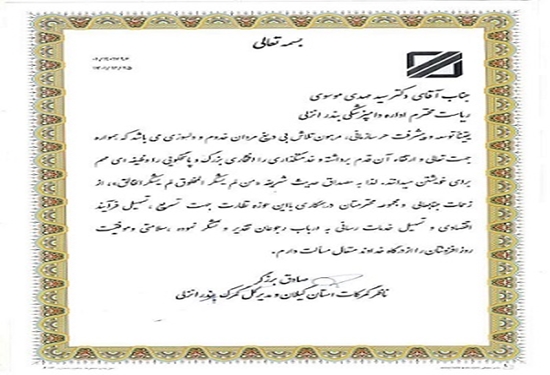 بسمه تعالی
جناب آقای دکتر سید مهدی موسوی
ریاست محترم اداره دامپزشکی بندر انزلی
یقیناً توسعه و پیشرفت هر سازمانی، مرهون تلاش بی دریغ مردان خدوم و دلسوزی می باشد که همواره
جهت تعالی و ارتقاء آن قدم برداشته و خدمتگذاری را افتخاری بزرگ و پاسخگویی را وظیفه ای مهم
برای خویشتن میدانند. لذا به مصداق حدیث شریفه «من لم یشکر المخلوق لم یشکر الخالق»، از
زحمات جنابعالی و مجموعه محترمتان در همکاری با این حوزه نظارت جهت تسریع، تسهیل فرآیند
اقتصادی و تسهیل خدمات رسانی به ارباب رجوعان تقدیر و تشکر نموده، سلامتی و موفقیت
روز افزونتان را از درگاه خداوند متعال مسألت دارم.
صادق برزگر
ناظر گمرکات استان گیلان و مدیر کل گمرک بندر انزلی